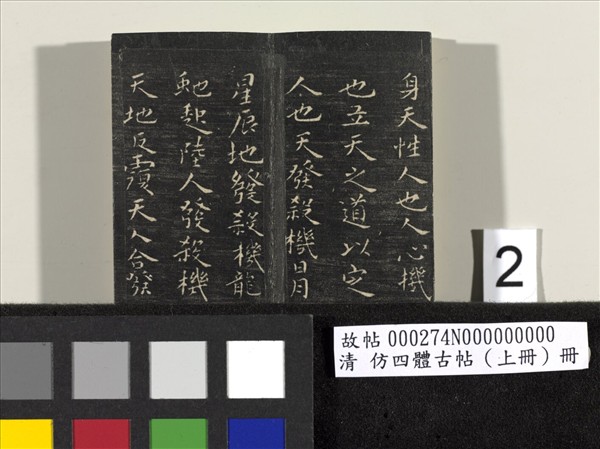 身天性人也人心機
也立天之道以定
人也天發殺機日月
星辰地發殺機龍
虵起陸人發殺機
天地反覆天人合發
2
故帖000274N000000000
清 仿四體古帖（上冊）冊